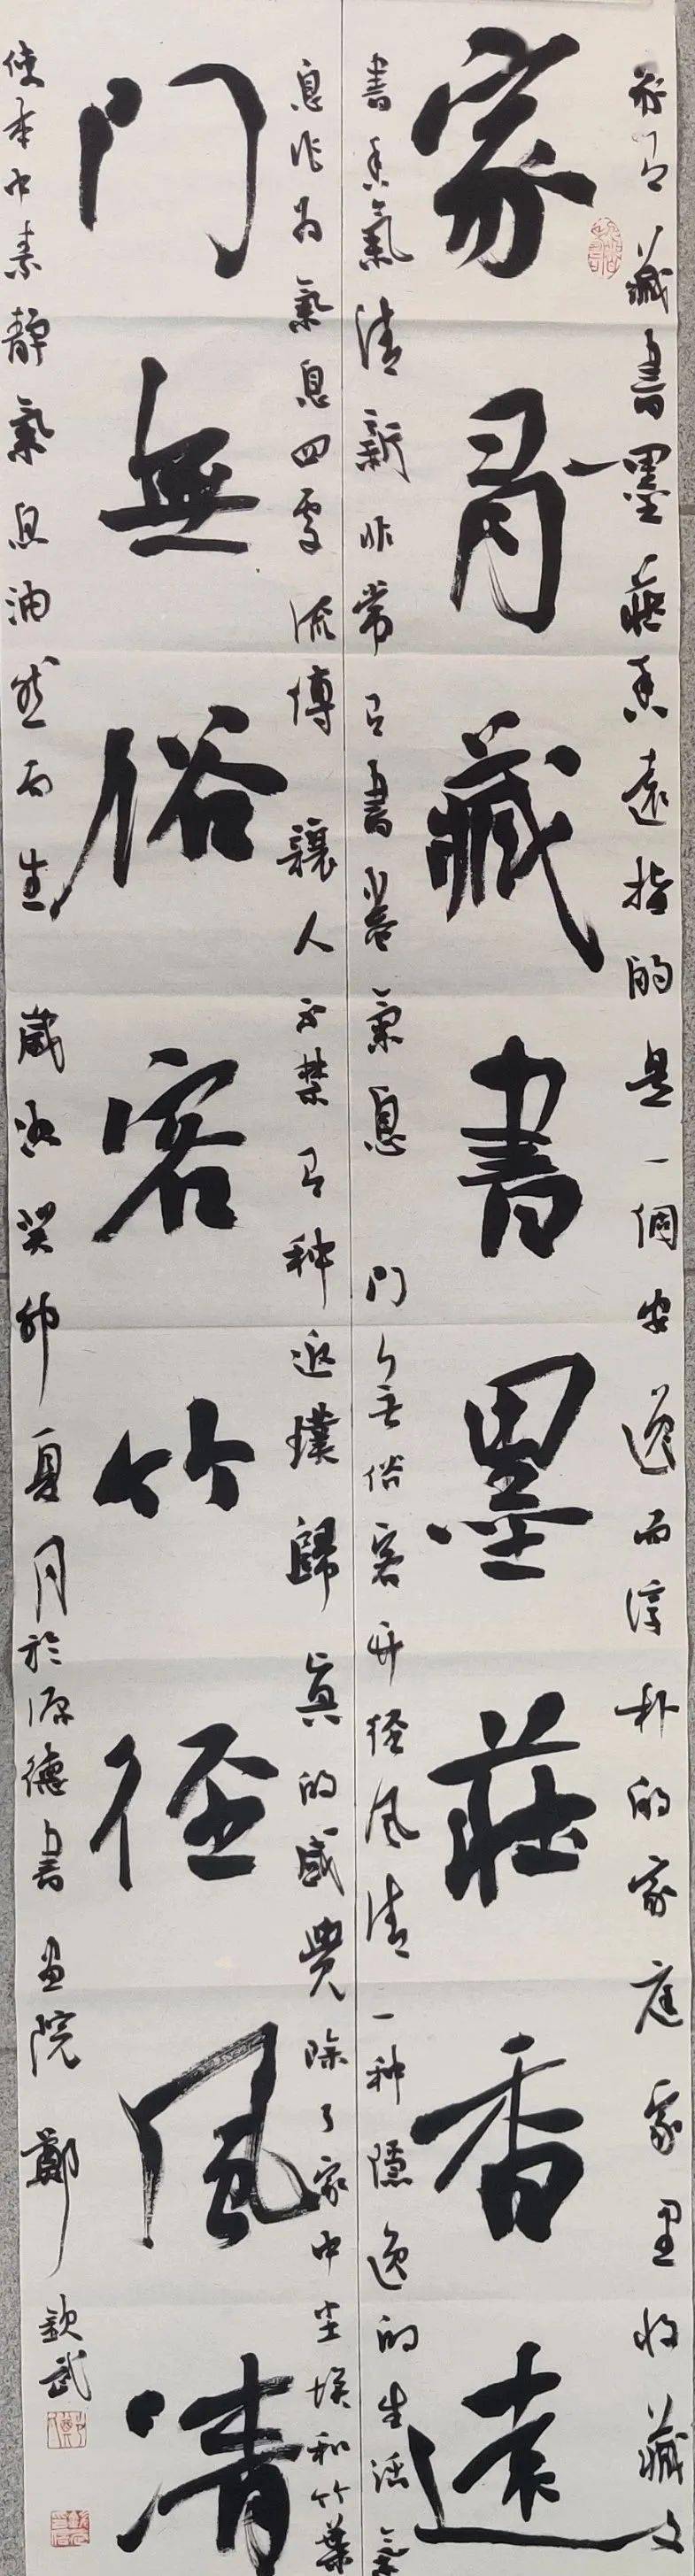 家有藏書墨莊香遠指的是一個安逸而淳朴的家庭家里收藏文
家有藏書墨莊香遠
書香氣清新非常有書氣息 門无俗客竹径风清一种隱逸的生活氣
息作为氣息四處流傳 讓人不禁有种返璞歸真的感覺除了家中尘埃和竹葉
門無俗客竹徑風清
使本中素靜氣息油然而生 歲次癸卯夏月於源德書画院 鄭欽武